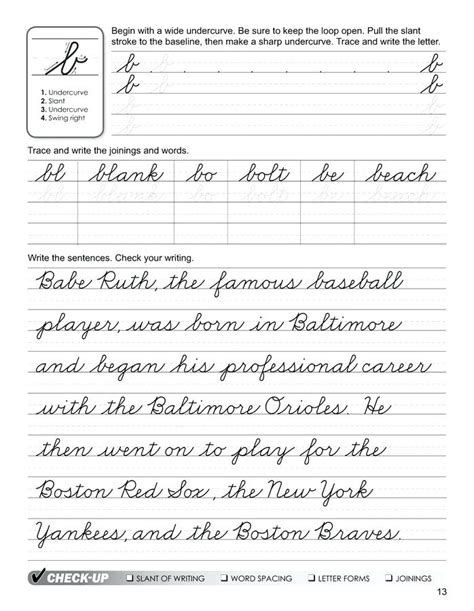 Begin with a wide undercurve. Be sure to keep the loop open. Pull the slant
stroke to the baseline, then make a sharp undercurve. Trace and write the letter.
b
1. Undercurve
2. Slant
3. Undercurve
4. Swing right
b b
b b
Trace and write the joinings and words.
bl blank bo bolt be beach
Write the sentences. Check your writing.
Babe Ruth, the famous baseball
player, was born in Baltimore
and began his professional career
with the Baltimore Orioles. He
then went on to play for the
Boston Red Sox, the New York
Yankees, and the Boston Braves.
✓ CHECK-UP ❏ SLANT OF WRITING ❏ WORD SPACING ❏ LETTER FORMS ❏ JOININGS
13